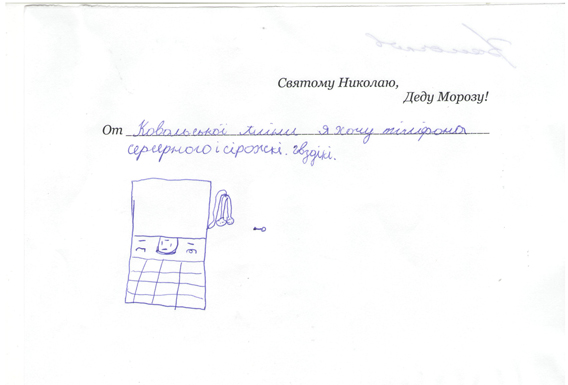 Святому Николаю,
Деду Морозу!
От Ковальської Аліни я хочу тіліфона
серсерного і сірожкі. гвздікі.